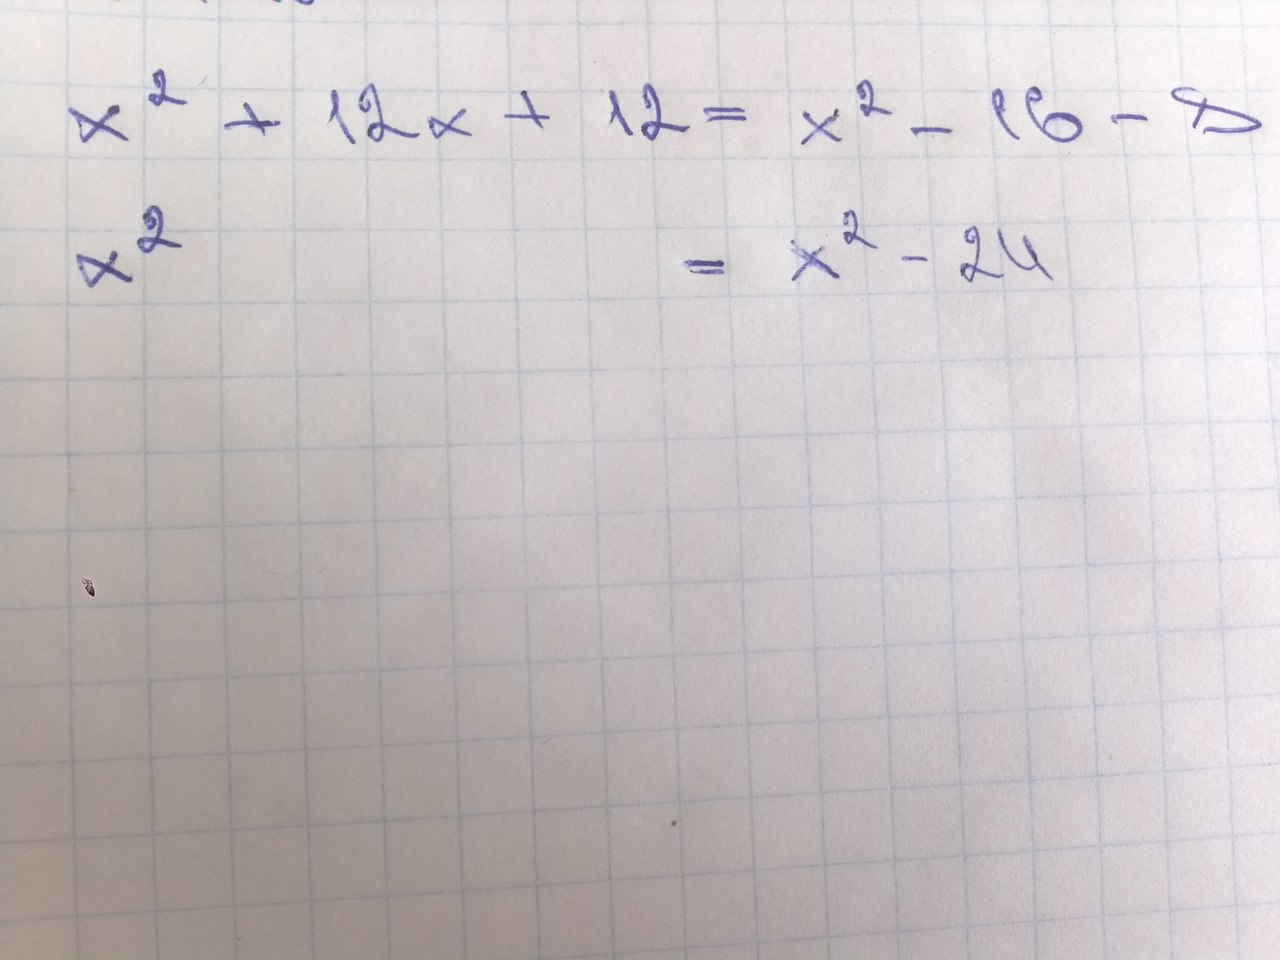 x² + 12x + 12 = x² - 16 - 8
x² = x² - 24